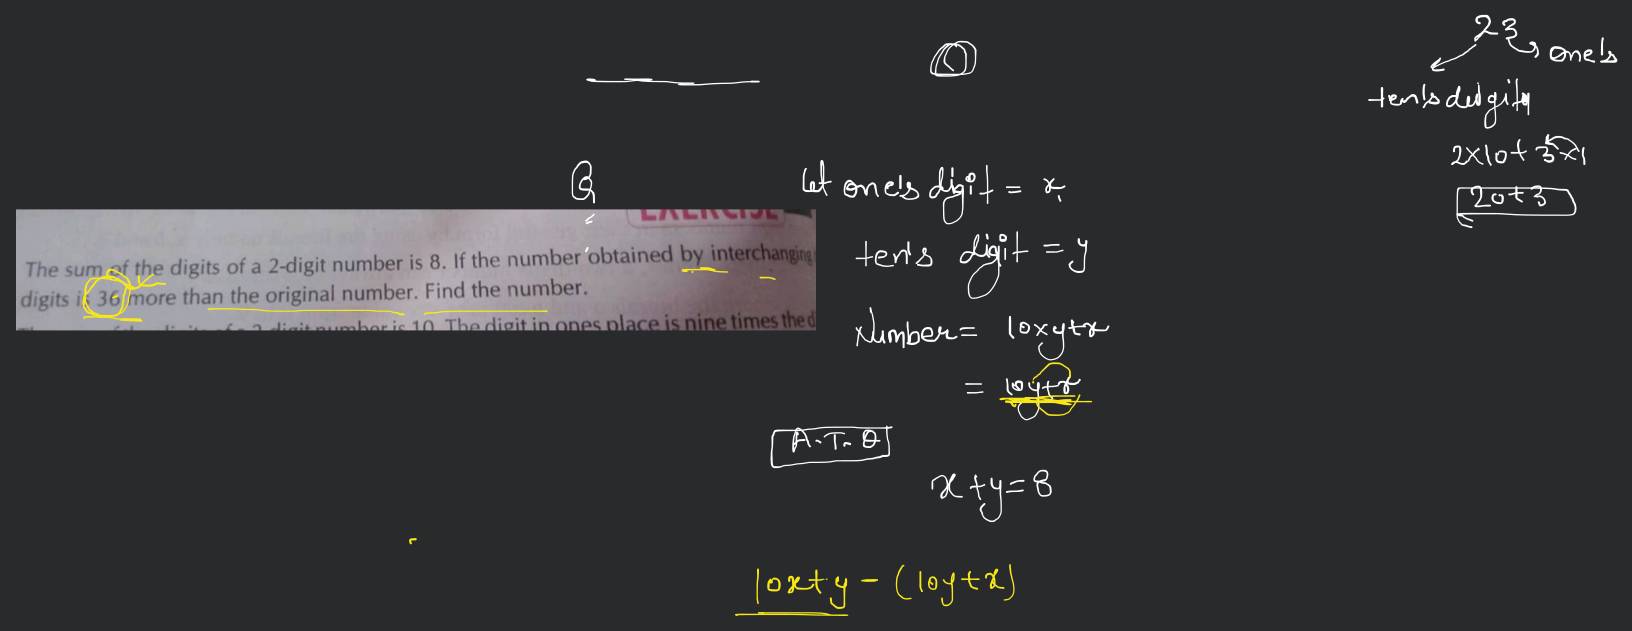 23
one's
ten's
2x10+ 3x1
20+3
Q
Let one's digit = x
EXERCISE
The sum of the digits of a 2-digit number is 8. If the number obtained by interchanging
digits is 36 more than the original number. Find the number.
2 digit number is 10. The digit in ones place is nine times the d
ten's digit = y
Number = 10xy+x
= 10y+x
A.T.Q
x+y=8
10x+y - (10y+x)